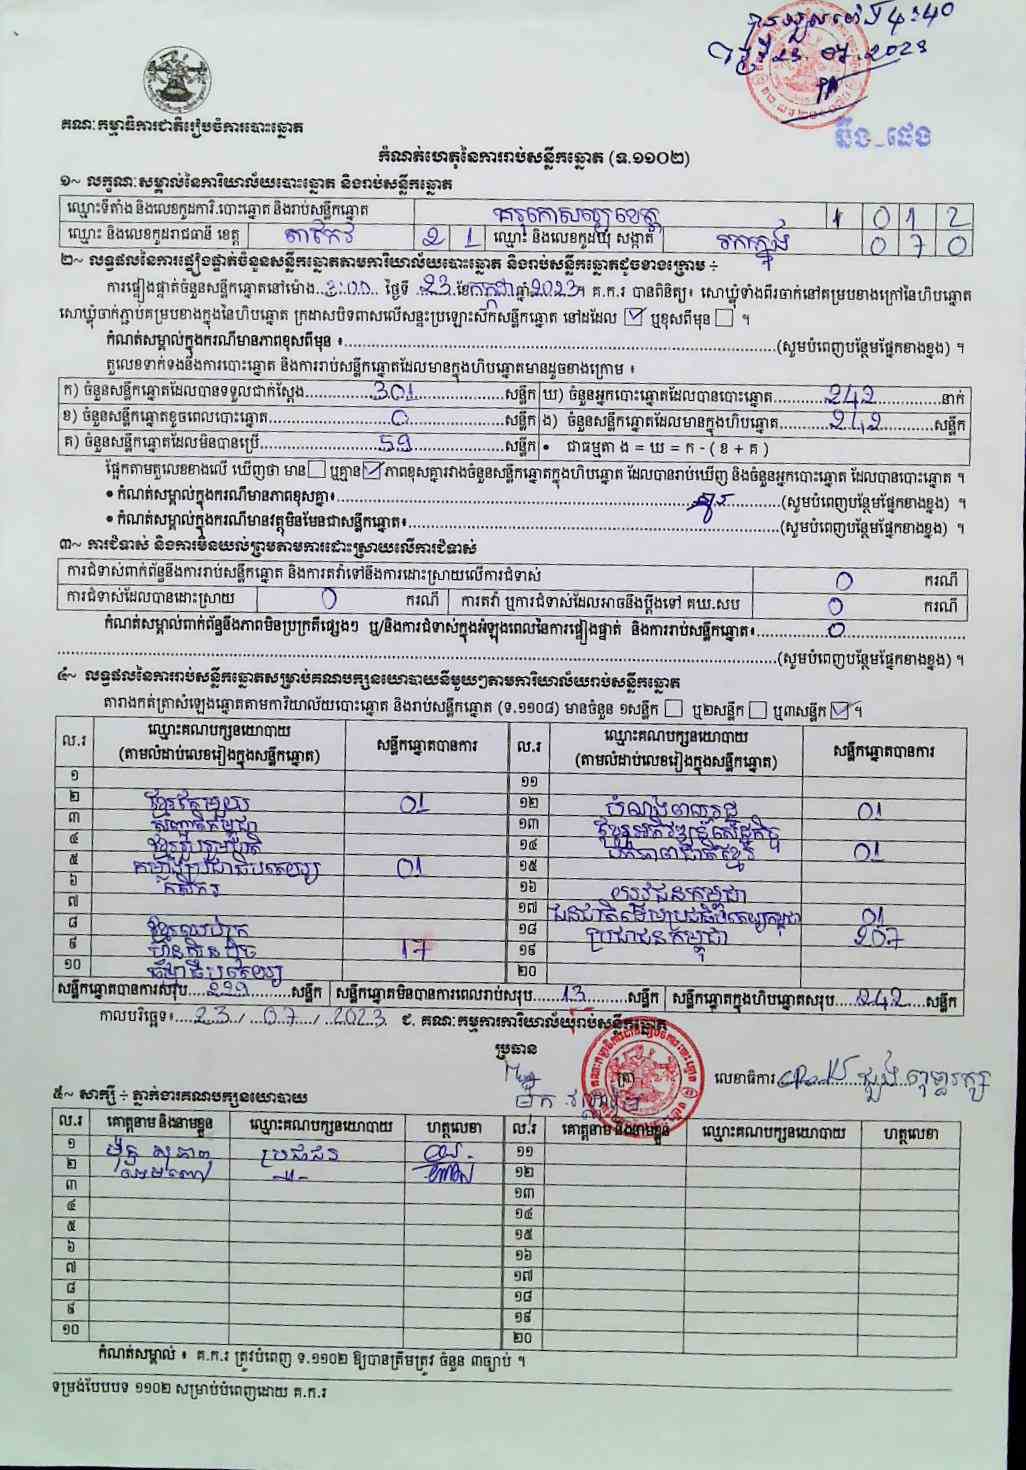 4:40
23. 07. 2023
គណៈកម្មាធិការជាតិរៀបចំការបោះឆ្នោត
កំណត់ហេតុនៃការរាប់សន្លឹកឆ្នោត (ទ.១១០២)
១~ លក្ខណៈសម្គាល់នៃការិយាល័យបោះឆ្នោត និងរាប់សន្លឹកឆ្នោត
ឈ្មោះទីតាំង និងលេខកូដការិ.បោះឆ្នោត និងរាប់សន្លឹកឆ្នោត 1 0 1 2
ឈ្មោះ និងលេខកូដរាជធានី ខេត្ត តាកែវ 2 1 ឈ្មោះ និងលេខកូដឃុំ សង្កាត់ 0 7 0
២~ លទ្ធផលនៃការផ្ទៀងផ្ទាត់ចំនួនសន្លឹកឆ្នោតតាមការិយាល័យបោះឆ្នោត និងរាប់សន្លឹកឆ្នោតដូចខាងក្រោម ÷
ការផ្ទៀងផ្ទាត់ចំនួនសន្លឹកឆ្នោតនៅម៉ោង 3:00 ថ្ងៃទី 23 ខែ កក្កដា ឆ្នាំ 2023 ។ គ.ក.រ បានពិនិត្យ៖ សោឃ្លុំទាំងពីរចាក់នៅគម្របខាងក្រៅនៃហិបឆ្នោត
សោឃ្លុំចាក់ភ្ជាប់គម្របខាងក្នុងនៃហិបឆ្នោត ក្រដាសបិទពាសលើសន្ទះប្រឡោះស៊កសន្លឹកឆ្នោត នៅដដែល ☑ ឬខុសពីមុន ☐ ។
កំណត់សម្គាល់ក្នុងករណីមានភាពខុសពីមុន ៖ (សូមបំពេញបន្ថែមផ្នែកខាងខ្នង) ។
តួលេខទាក់ទងនឹងការបោះឆ្នោត និងការរាប់សន្លឹកឆ្នោតដែលមានក្នុងហិបឆ្នោតមានដូចខាងក្រោម ៖
ក) ចំនួនសន្លឹកឆ្នោតដែលបានទទួលជាក់ស្តែង 301 សន្លឹក ឃ) ចំនួនអ្នកបោះឆ្នោតដែលបានបោះឆ្នោត 242 នាក់
ខ) ចំនួនសន្លឹកឆ្នោតខូចពេលបោះឆ្នោត 0 សន្លឹក ង) ចំនួនសន្លឹកឆ្នោតដែលមានក្នុងហិបឆ្នោត 242 សន្លឹក
គ) ចំនួនសន្លឹកឆ្នោតដែលមិនបានប្រើ 59 សន្លឹក • ជាធម្មតា ង = ឃ = ក - ( ខ + គ )
ផ្អែកតាមតួលេខខាងលើ ឃើញថា មាន ☐ ឬគ្មាន ☑ ភាពខុសគ្នារវាងចំនួនសន្លឹកឆ្នោតក្នុងហិបឆ្នោត ដែលបានរាប់ឃើញ និងចំនួនអ្នកបោះឆ្នោត ដែលបានបោះឆ្នោត ។
• កំណត់សម្គាល់ក្នុងករណីមានភាពខុសគ្នា៖ (សូមបំពេញបន្ថែមផ្នែកខាងខ្នង) ។
• កំណត់សម្គាល់ក្នុងករណីមានវត្ថុមិនមែនជាសន្លឹកឆ្នោត៖ (សូមបំពេញបន្ថែមផ្នែកខាងខ្នង) ។
៣~ ការជំទាស់ និងការមិនយល់ព្រមតាមការដោះស្រាយលើការជំទាស់
ការជំទាស់ពាក់ព័ន្ធនឹងការរាប់សន្លឹកឆ្នោត និងការតវ៉ាទៅនឹងការដោះស្រាយលើការជំទាស់ 0 ករណី
ការជំទាស់ដែលបានដោះស្រាយ 0 ករណី ការតវ៉ា ឬការជំទាស់ដែលអាចនឹងប្តឹងទៅ គឃ.សប 0 ករណី
កំណត់សម្គាល់ពាក់ព័ន្ធនឹងភាពមិនប្រក្រតីផ្សេងៗ ឬ/និងការជំទាស់ក្នុងអំឡុងពេលនៃការផ្ទៀងផ្ទាត់ និងការរាប់សន្លឹកឆ្នោត៖ 0
(សូមបំពេញបន្ថែមផ្នែកខាងខ្នង) ។
៤~ លទ្ធផលនៃការរាប់សន្លឹកឆ្នោតសម្រាប់គណបក្សនយោបាយនីមួយៗតាមការិយាល័យរាប់សន្លឹកឆ្នោត
តារាងកត់ត្រាសំឡេងឆ្នោតតាមការិយាល័យបោះឆ្នោត និងរាប់សន្លឹកឆ្នោត (ទ.១១០៨) មានចំនួន ១សន្លឹក ☐ ឬ២សន្លឹក ☐ ឬ៣សន្លឹក ☑ ។
ល.រ ឈ្មោះគណបក្សនយោបាយ (តាមលំដាប់លេខរៀងក្នុងសន្លឹកឆ្នោត) សន្លឹកឆ្នោតបានការ ល.រ ឈ្មោះគណបក្សនយោបាយ (តាមលំដាប់លេខរៀងក្នុងសន្លឹកឆ្នោត) សន្លឹកឆ្នោតបានការ
១ ១១
២ ខ្មែរតែមួយ 01 ១២ 01
៣ សញ្ជាតិកម្ពុជា ១៣ ខ្មែរអភិវឌ្ឍន៍សេដ្ឋកិច្ច
៤ ខ្មែររួបរួមជាតិ ១៤ 01
៥ កម្លាំងប្រជាធិបតេយ្យ 01 ១៥
៦ កសិករ ១៦ យុវជនកម្ពុជា
៧ ១៧ ជនជាតិដើមប្រជាធិបតេយ្យកម្ពុជា 01
៨ ខ្មែរឈប់ក្រ ១៨ ប្រជាជនកម្ពុជា 207
៩ ហ៊្វុនស៊ិនប៉ិច 17 ១៩
១០ ធម្មាធិបតេយ្យ ២០
សន្លឹកឆ្នោតបានការសរុប 229 សន្លឹក សន្លឹកឆ្នោតមិនបានការពេលរាប់សរុប 13 សន្លឹក សន្លឹកឆ្នោតក្នុងហិបឆ្នោតសរុប 242 សន្លឹក
កាលបរិច្ឆេទ៖ 23 / 07 / 2023 ជ. គណៈកម្មការការិយាល័យរាប់សន្លឹកឆ្នោត
ប្រធាន
ត្រា
លេខាធិការ
៥~ សាក្សី ÷ ភ្នាក់ងារគណបក្សនយោបាយ
ល.រ គោត្តនាម និងនាមខ្លួន ឈ្មោះគណបក្សនយោបាយ ហត្ថលេខា ល.រ គោត្តនាម និងនាមខ្លួន ឈ្មោះគណបក្សនយោបាយ ហត្ថលេខា
១ ប្រជាជន ១១
២ -"- ១២
៣ ១៣
៤ ១៤
៥ ១៥
៦ ១៦
៧ ១៧
៨ ១៨
៩ ១៩
១០ ២០
កំណត់សម្គាល់ ៖ គ.ក.រ ត្រូវបំពេញ ទ.១១០២ ឱ្យបានត្រឹមត្រូវ ចំនួន ៣ច្បាប់ ។
ទម្រង់បែបបទ ១១០២ សម្រាប់បំពេញដោយ គ.ក.រ